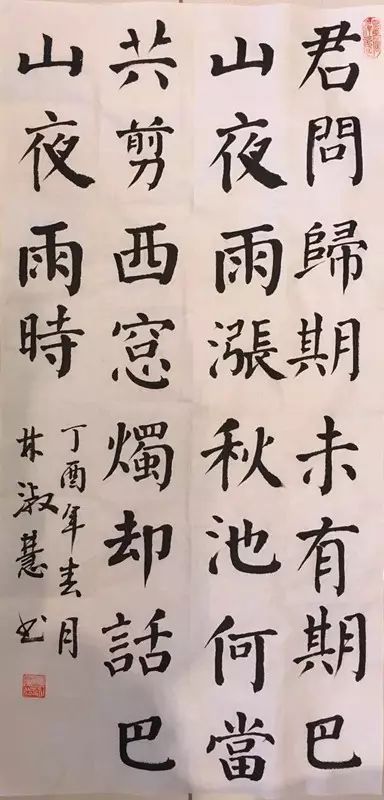 君問歸期未有期巴
山夜雨漲秋池何當
共剪西窓燭却話巴
山夜雨時
丁酉年春月
林淑慧书